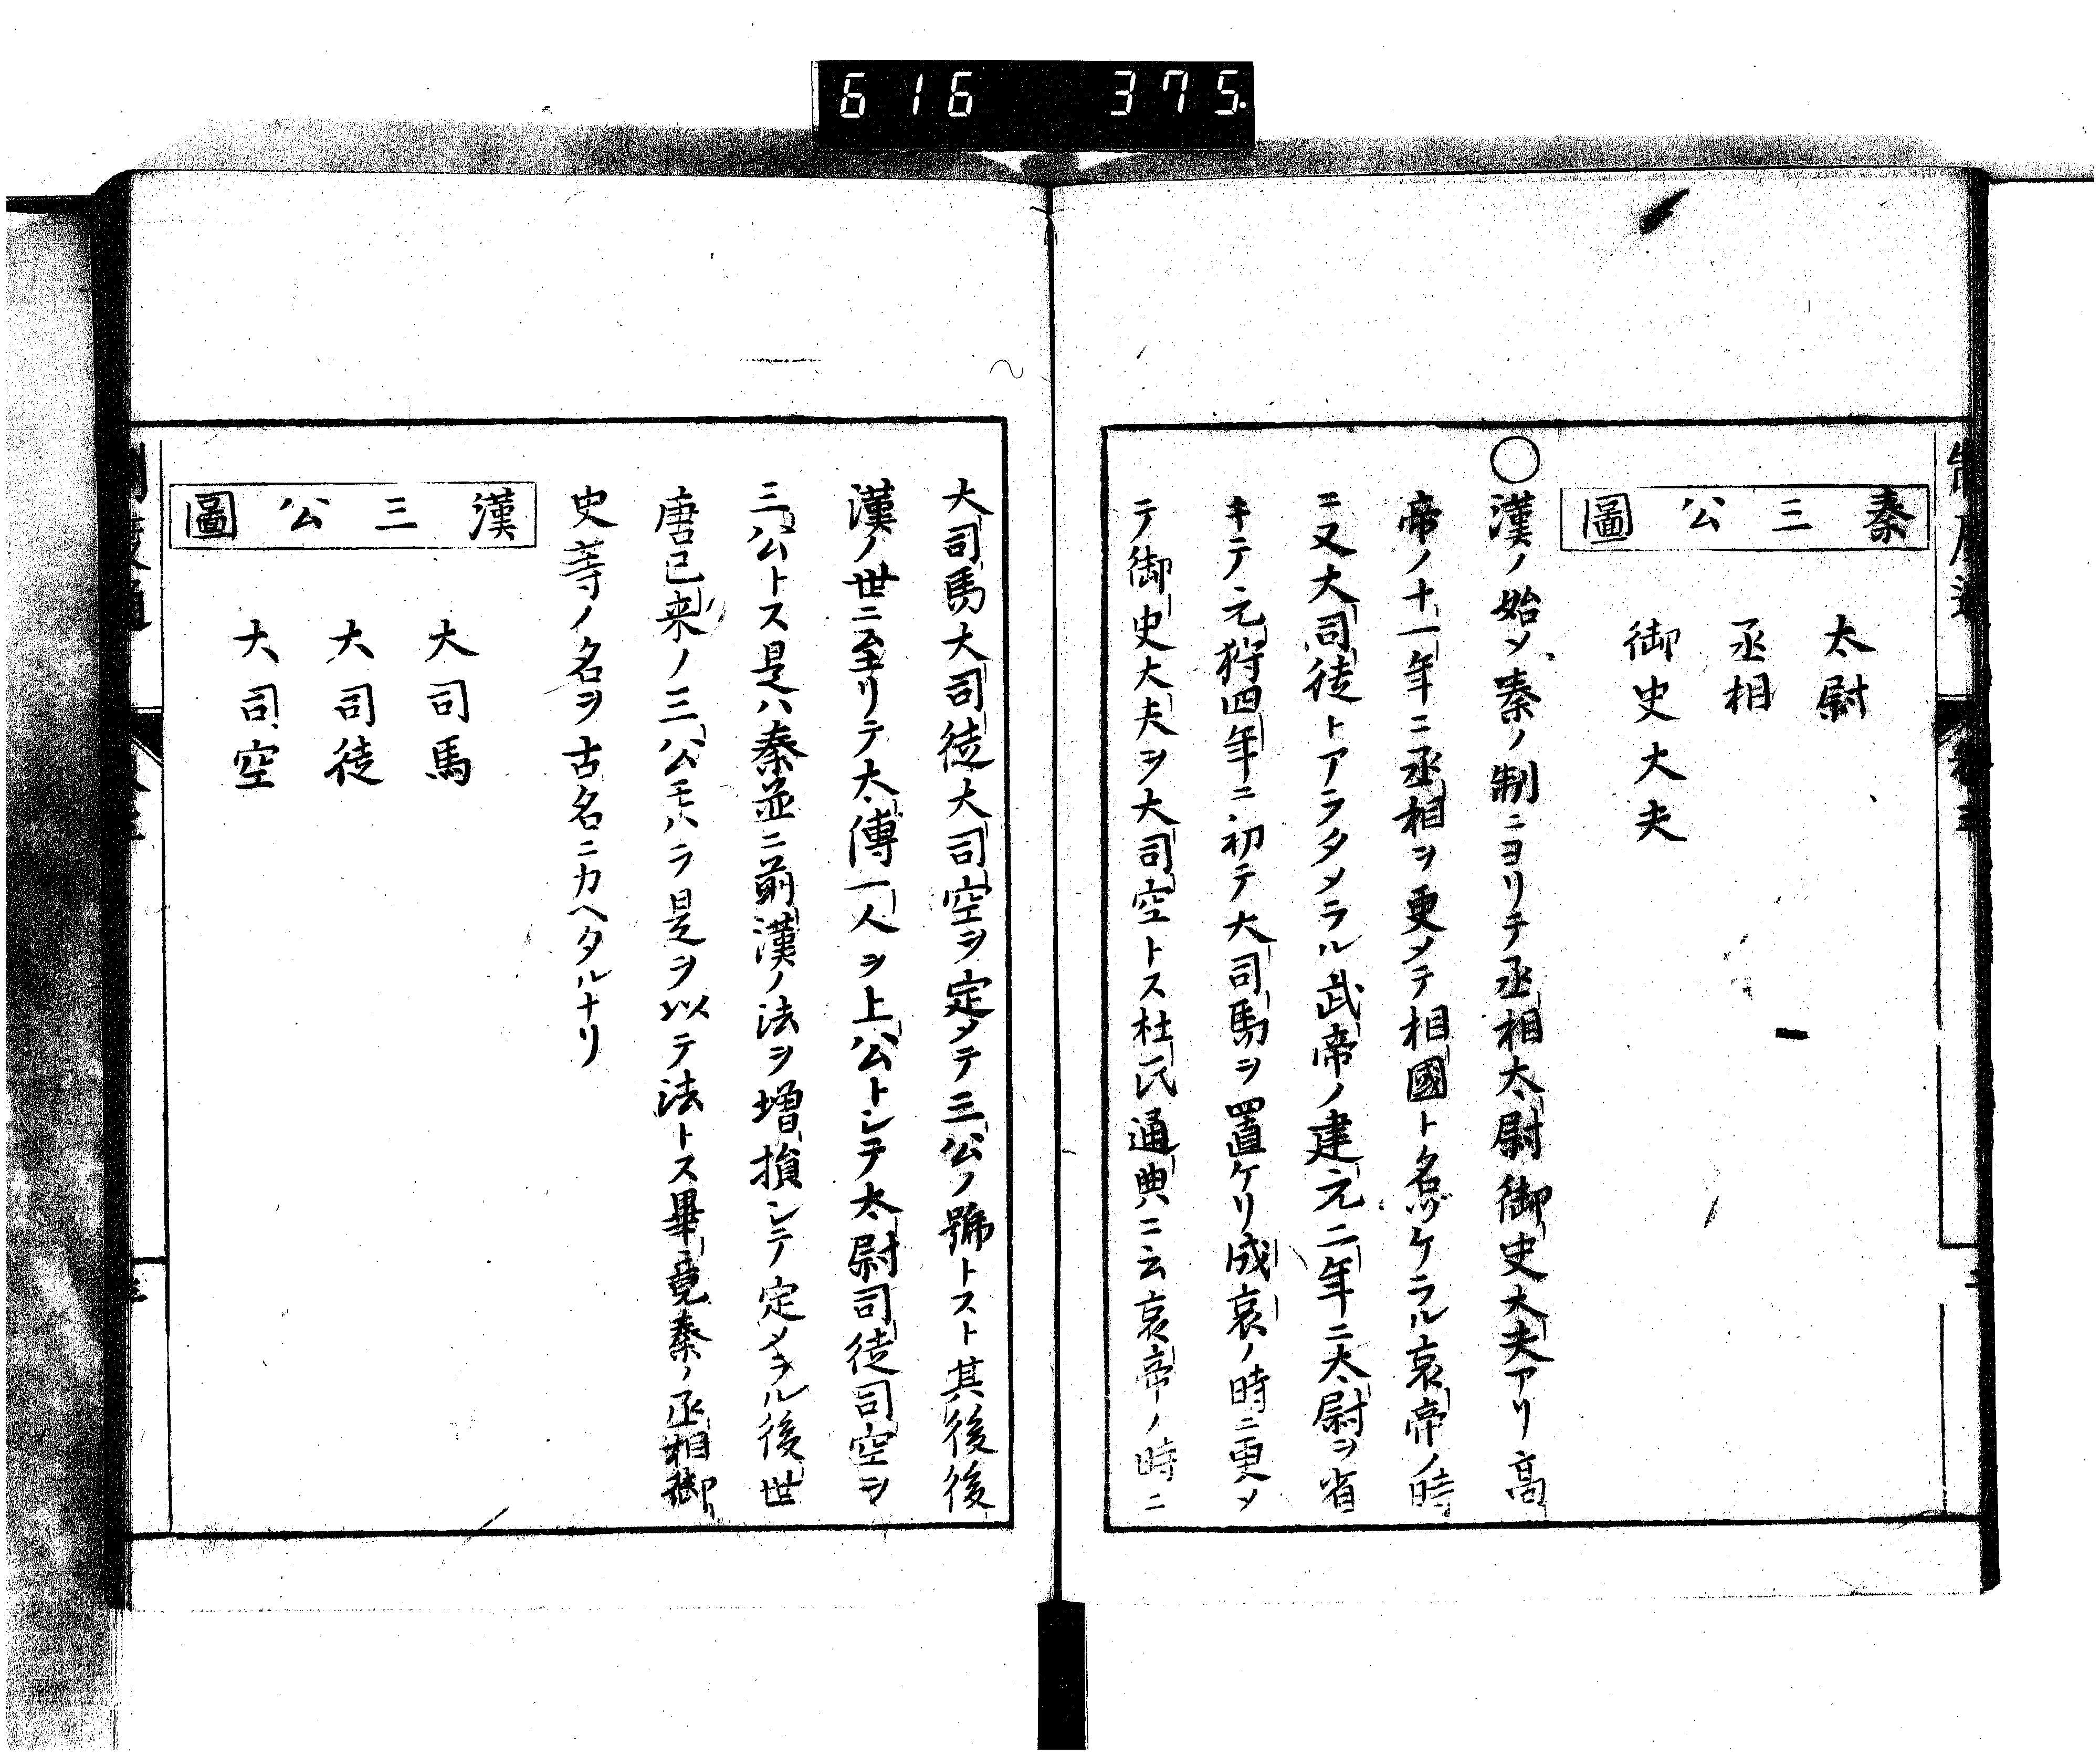 616 375
秦三公圖
太尉
丞相
御史大夫
○漢ノ始メ秦ノ制ニヨリテ丞相太尉御史大夫アリ高
帝ノ十一年ニ丞相ヲ更メテ相國ト名ヅケラル哀帝ノ時
ニ又大司徒トアラタメラル武帝ノ建元二年ニ太尉ヲ省
キテ元狩四年ニ初テ大司馬ヲ置ケリ成哀ノ時ニ更メ
テ御史大夫ヲ大司空トス杜氏通典ニ云哀帝ノ時ニ
大司馬大司徒大司空ヲ定メテ三公ノ號トスト其後後
漢ノ世ニ至リテ太傅一人ヲ上公トシテ太尉司徒司空ヲ
三公トス是ハ秦並ニ前漢ノ法ヲ増損シテ定メラル後世
唐已来ノ三公モハラ是ヲ以テ法トス畢竟秦ノ丞相御
史等ノ名ヲ古名ニカヘタルナリ
漢三公圖
大司馬
大司徒
大司空